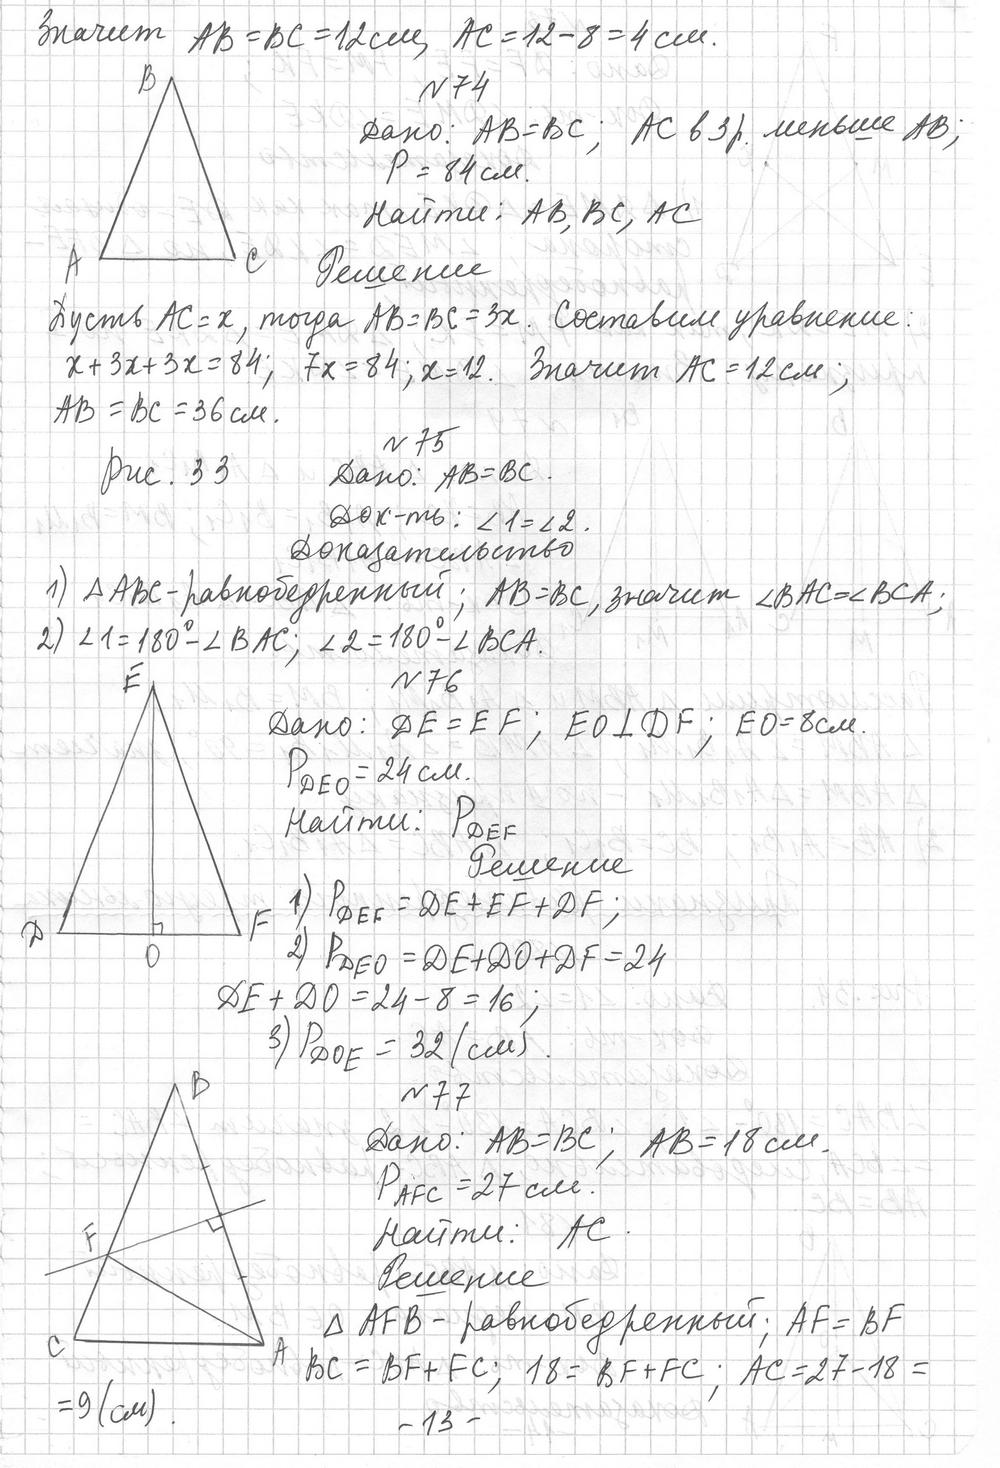 Значит AB=BC=12см, AC=12-8=4см.
B
A
C
№74
Дано: AB=BC; AC в 3р. меньше AB;
P = 84см.
Найти: AB, BC, AC
Решение
Пусть AC=x, тогда AB=BC=3x. Составим уравнение:
x+3x+3x=84; 7x=84; x=12. Значит AC=12см;
AB = BC = 36см.
№75
рис. 33
Дано: AB=BC.
Док-ть: ∠1=∠2.
Доказательство
1) △ABC-равнобедренный; AB=BC, значит ∠BAC=∠BCA;
2) ∠1=180°-∠BAC; ∠2=180°-∠BCA.
№76
E
D
O
F
Дано: DE=EF; EO⊥DF; EO=8см.
P_DEO=24см.
Найти: P_DEF
Решение
1) P_DEF = DE+EF+DF;
2) P_DEO = DE+DO+DF=24
DE+DO=24-8=16;
3) P_DOE = 32(см).
№77
B
F
C
A
Дано: AB=BC; AB=18см.
P_AFC=27см.
Найти: AC.
Решение
△ AFB-равнобедренный; AF=BF
BC=BF+FC; 18=BF+FC; AC=27-18=
=9(см).
-13-